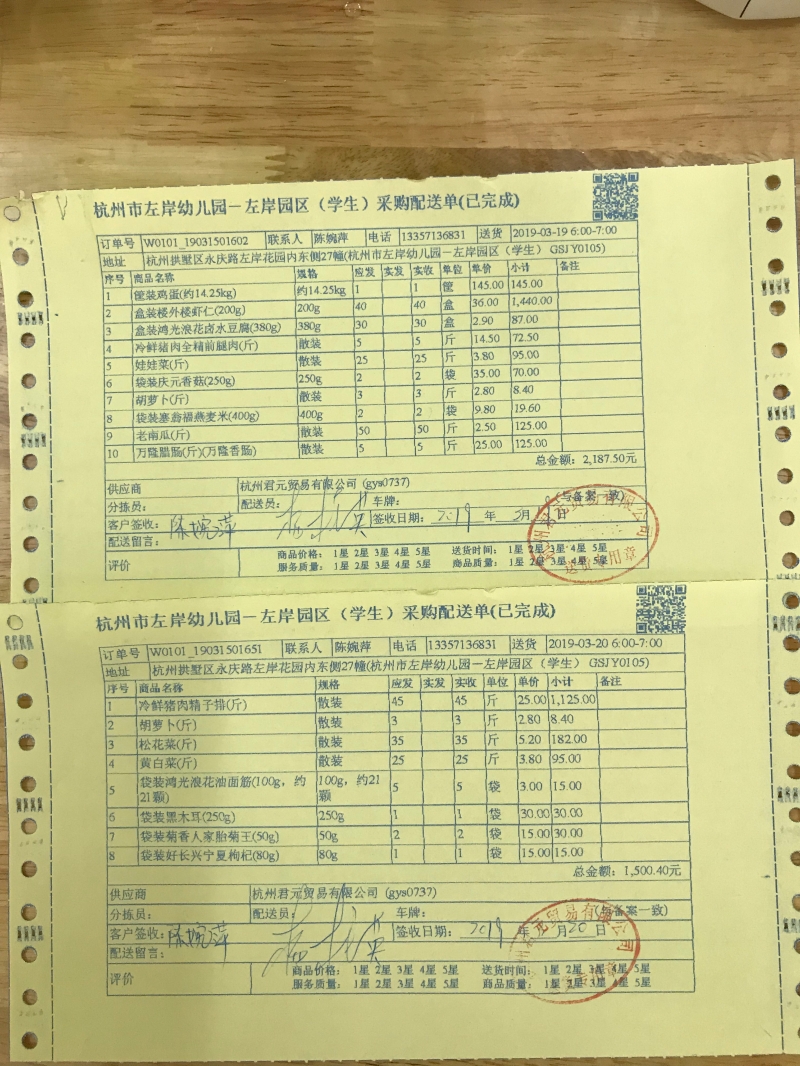 杭州市左岸幼儿园－左岸园区（学生）采购配送单(已完成)
订单号 W0101_19031501602 联系人 陈婉萍 电话 13357136831 送货 2019-03-19 6:00-7:00
地址 杭州拱墅区永庆路左岸花园内东侧27幢(杭州市左岸幼儿园－左岸园区（学生） GSJY0105)
序号 商品名称 规格 应发 实发 实收 单位 单价 小计 备注
1 筐装鸡蛋(约14.25kg) 约14.25kg 1 1 筐 145.00 145.00
2 盒装楼外楼虾仁(200g) 200g 40 40 盒 36.00 1,440.00
3 盒装鸿光浪花卤水豆腐(380g) 380g 30 30 盒 2.90 87.00
4 冷鲜猪肉全精前腿肉(斤) 散装 5 5 斤 14.50 72.50
5 娃娃菜(斤) 散装 25 25 斤 3.80 95.00
6 袋装庆元香菇(250g) 250g 2 2 袋 35.00 70.00
7 胡萝卜(斤) 散装 3 3 斤 2.80 8.40
8 袋装塞翁福燕麦米(400g) 400g 2 2 袋 9.80 19.60
9 老南瓜(斤) 散装 50 50 斤 2.50 125.00
10 万隆腊肠(斤)(万隆香肠) 散装 5 5 斤 25.00 125.00
总金额：2,187.50元
供应商 杭州君元贸易有限公司 (gys0737)
分拣员： 配送员： 车牌： (与备案一致)
客户签收： 陈婉萍 签收日期： 2019 年 3月 日
配送留言：
评价 商品价格： 1星 2星 3星 4星 5星 送货时间： 1星 2星 3星 4星 5星
服务质量： 1星 2星 3星 4星 5星 商品质量： 1星 2星 3星 4星 5星
杭州市左岸幼儿园－左岸园区（学生）采购配送单(已完成)
订单号 W0101_19031501651 联系人 陈婉萍 电话 13357136831 送货 2019-03-20 6:00-7:00
地址 杭州拱墅区永庆路左岸花园内东侧27幢(杭州市左岸幼儿园－左岸园区（学生） GSJY0105)
序号 商品名称 规格 应发 实发 实收 单位 单价 小计 备注
1 冷鲜猪肉精子排(斤) 散装 45 45 斤 25.00 1,125.00
2 胡萝卜(斤) 散装 3 3 斤 2.80 8.40
3 松花菜(斤) 散装 35 35 斤 5.20 182.00
4 黄白菜(斤) 散装 25 25 斤 3.80 95.00
5 袋装鸿光浪花油面筋(100g，约21颗) 100g，约21颗 5 5 袋 3.00 15.00
6 袋装黑木耳(250g) 250g 1 1 袋 30.00 30.00
7 袋装菊香人家胎菊王(50g) 50g 2 2 袋 15.00 30.00
8 袋装好长兴宁夏枸杞(80g) 80g 1 1 袋 15.00 15.00
总金额：1,500.40元
供应商 杭州君元贸易有限公司 (gys0737)
分拣员： 配送员： 车牌： (与备案一致)
客户签收： 陈婉萍 签收日期： 2019 年 月20 日
配送留言：
评价 商品价格： 1星 2星 3星 4星 5星 送货时间： 1星 2星 3星 4星 5星
服务质量： 1星 2星 3星 4星 5星 商品质量： 1星 2星 3星 4星 5星